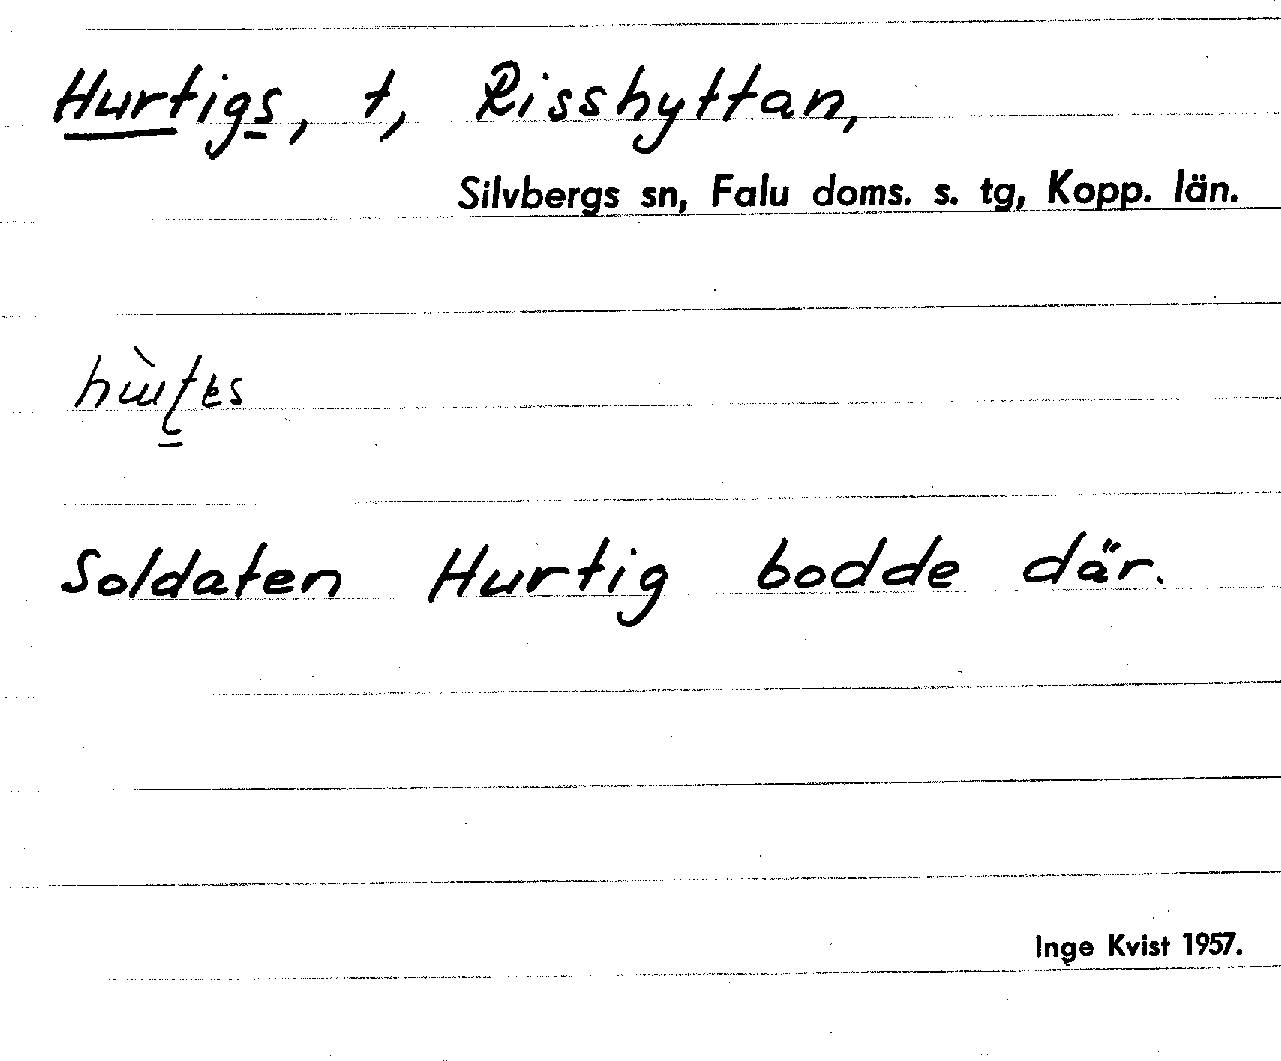 Hurtigs, t, Risshyttan,
Silvbergs sn, Falu doms. s. tg, Kopp. län.
Soldaten Hurtig bodde där.
Inge Kvist 1957.